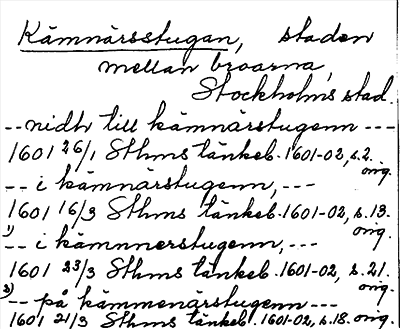 Kämnärsstugan, staden
mellan broarna,
Stockholms stad.
-- nidh till kämnärstugenn ---
1601 26/1 Sthms tänkeb. 1601-02, s. 2.
orig.
-- i kämnärstugenn, ---
1601 16/3 Sthms tänkeb. 1601-02, s. 13.
orig.
1) -- i kämnnerstugenn, ---
1601 23/3 Sthms tänkeb. 1601-02, s. 21.
orig.
2) -- på kämmenärstugenn ---
1601 21/3 Sthms tänkeb. 1601-02, s. 18. orig.